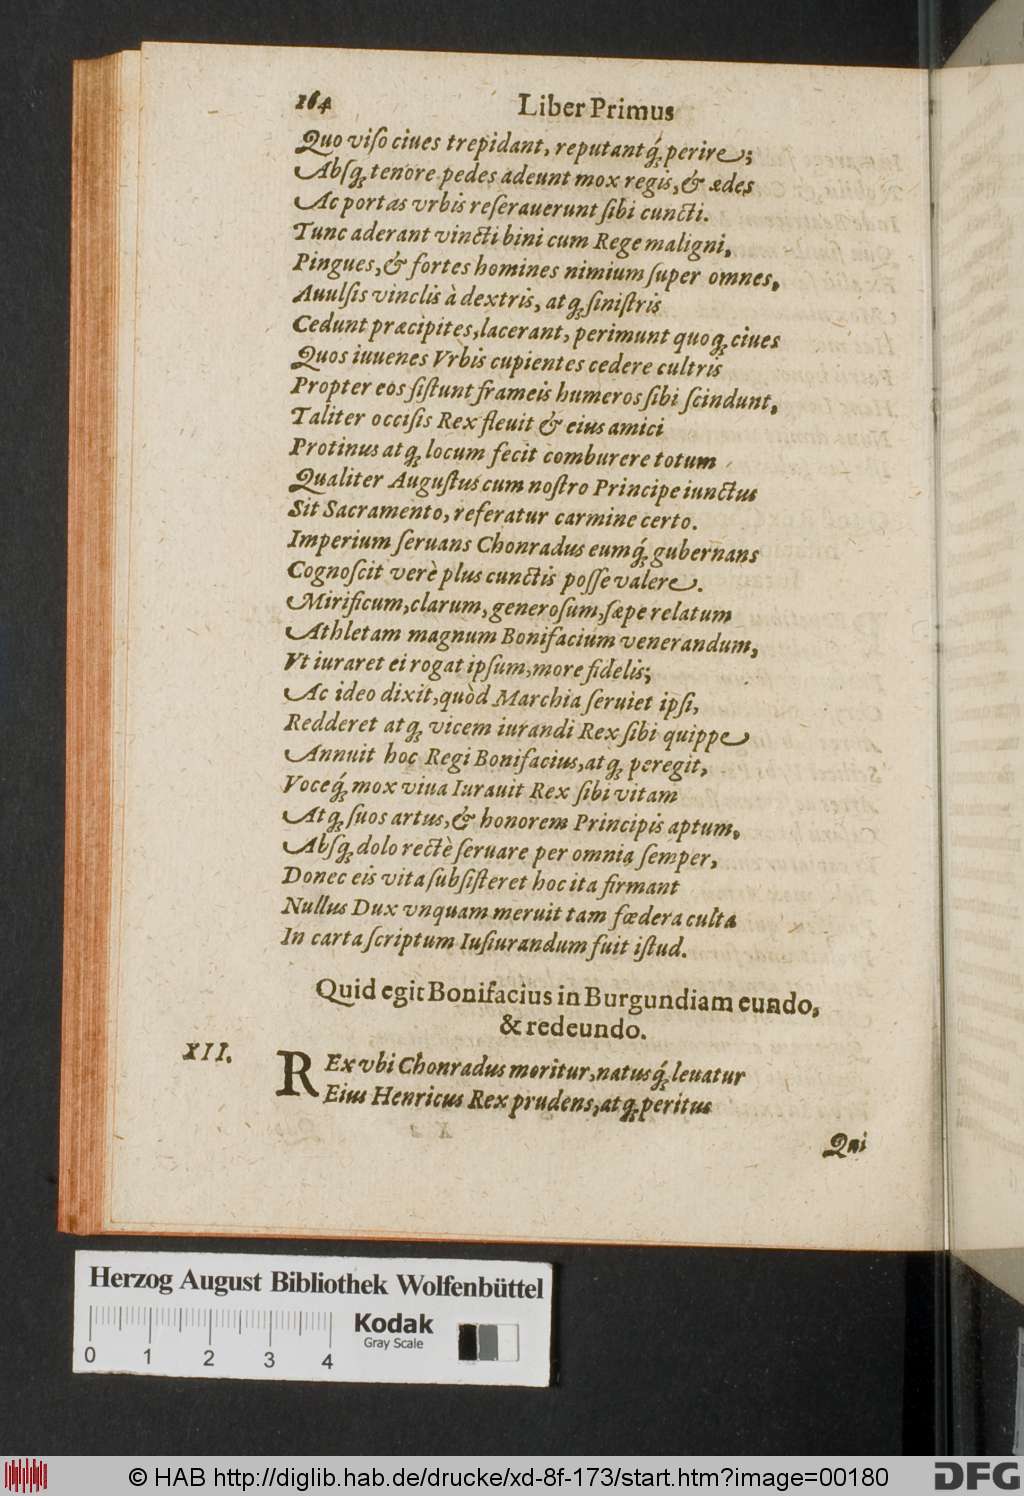 164
Liber Primus
Quo viſo ciues trepidant, reputantq́; perire;
Abſq; tenore pedes adeunt mox regis, & ædes
Ac portas vrbis reſerauerunt ſibi cuncti.
Tunc aderant vincti bini cum Rege maligni,
Pingues, & fortes homines nimium ſuper omnes,
Auulſis vinclis à dextris, atq; ſiniſtris
Cedunt præcipites, lacerant, perimunt quoq; ciues
Quos iuuenes Vrbis cupientes cedere cultris
Propter eos ſiſtunt frameis humeros ſibi ſcindunt,
Taliter occiſis Rex fleuit & eius amici
Protinus atq; locum fecit comburere totum
Qualiter Auguſtus cum noſtro Principe iunctus
Sit Sacramento, referatur carmine certo.
Imperium ſeruans Chonradus eumq́; gubernans
Cognoſcit verè plus cunctis poſſe valere.
Mirificum, clarum, generoſum, ſæpe relatum
Athletam magnum Bonifacium venerandum,
Vt iuraret ei rogat ipſum, more fidelis;
Ac ideo dixit, quòd Marchia ſeruiet ipſi,
Redderet atq; vicem iurandi Rex ſibi quippe
Annuit hoc Regi Bonifacius, atq; peregit,
Voceq́; mox viua Iurauit Rex ſibi vitam
Atq; ſuos artus, & honorem Principis aptum,
Abſq; dolo rectè ſeruare per omnia ſemper,
Donec eis vita ſubſiſteret hoc ita firmant
Nullus Dux vnquam meruit tam fœdera culta
In carta ſcriptum Iuſiurandum fuit iſtud.
Quid egit Bonifacius in Burgundiam eundo,
& redeundo.
XII.
REx vbi Chonradus moritur, natusq́; leuatur
Eius Henricus Rex prudens, atq; peritus
Qui
Herzog August Bibliothek Wolfenbüttel
Kodak
Gray Scale
0 1 2 3 4
© HAB http://diglib.hab.de/drucke/xd-8f-173/start.htm?image=00180
DFG